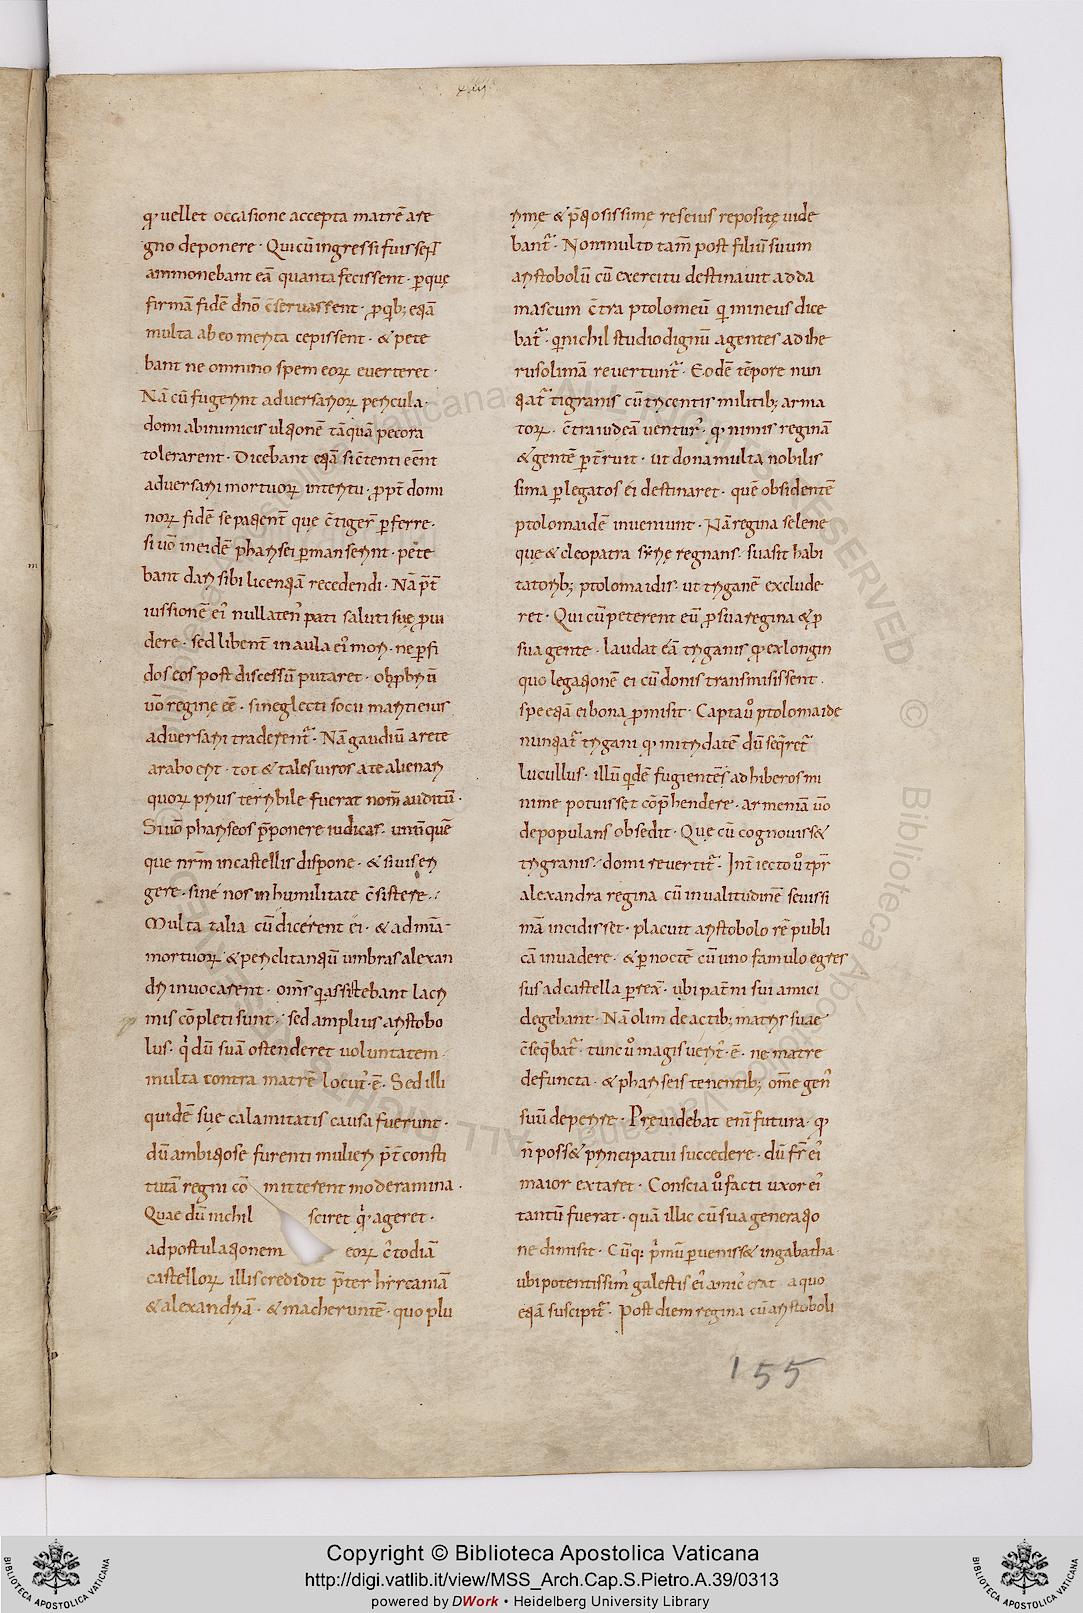 xiiij
qđ uellet occasione accepta matrē a re
gno deponere · Qui cū ingressi fuissent
ammonebant eā quanta fecissent · p̄ quę
firmā fidē dnō c̄seruassent · p̄ quib; eciā
multa ab eo merita cepissent · & pete
bant ne omnino spem eorꝝ euerteret ·
Nā cū fugerint aduersariorꝝ pericula ·
domi ab inimicis ultionē tāquā pecora
tolerarent · Dicebant eciā si c̄tenti eēnt
aduersarii mortuorꝝ interitu · ppt̄ domi
norꝝ fidē se pacient̄ que c̄tiger̄ p̄ferre ·
si uō in eidē pharisei p̄manserint · pete
bant dari sibi licentiā recedendi · Nā p̄t̄
iussionē ei᷒ nullaten᷒ pati saluti suę p̄ui
dere · sed libent̄ in aula ei᷒ mori · ne p̄fi
dos eos post discessū putaret · obp̄briū
uō reginę eē · si neglecti socii mariti eius
aduersarii traderent᷑ · Nā gaudiū arete
arabo erit · tot & tales uiros a te alienari
quorꝝ prius terribile fuerat nom̄ auditū ·
Si uō phariseos p̄ponere iudicas · unūquē
que nr̄m in castellis dispone · & si uis eri
gere · sine nos in humilitate c̄sistere ·
Multa talia cū dicerent ei · & ad miā
mortuorꝝ & periclitantiū umbras alexan
dri inuocarent · om̄s qi assistebant lacri
mis cōpleti sunt · sed amplius aristobo
lus · qi dū suā ostenderet uoluntatem ·
multa contra matrē locut᷒ · ē · Sed illi
quidē sue calamitatis causa fuerunt ·
dū ambitiose furenti mulieri p̄t̄ consti
tutā regni cō mitterent moderamina ·
Quae dū nichil sciret qđ ageret ·
ad postulationem eorꝝ c᷒todiā
castellorꝝ illis credidit p̄ter hircaniā
& alexandriā · & macheruntē · quo plu
rimę & p̄tiosissimę res eius repositę uide
bant᷑ · Non multo tam̄ post filiū suum
aristobolū cū exercitu destinauit ad da
mascum c̄tra ptolomeū qi mineus dice
bat᷑ · qi nichil studio dignū agentes ad ihe
rusolimā reuertunt᷑ · Eodē tēpore nun
tiat᷑ tigranis cū tricentis militib; arma
torꝝ · c̄tra iudeā uentur᷒ · qđ nimis reginā
& gentē p̄t̄ruit · ut dona multa nobilis
sima p̄ legatos ei destinaret · quē obsidentē
ptolomaidē inueniunt · Nā regina selene
que & cleopatra sirię regnans · suasit habi
tatorib; ptolomaidis · ut triganē exclude
ret · Qui cū peterent eū p̄ sua regina & p̄
sua gente · laudat eā triganis qđ ex longin
quo legationē ei cū donis transmisissent ·
spe eciā ei bona p̄misit · Capta uō ptolomaide
nuntiat᷑ trigani qđ mitridatē dū seq̄ret᷑
lucullus · illū qidē fugientē ad hiberos mi
nime potuisset cōp̄hendere · armeniā uō
depopulans obsedit · Quę cū cognouiss&
trigranis · domi reuertit᷑ · Int̄iecto uō tp̄r
alexandra regina cū in ualitudinē seuissi
mā incidisset · placuit aristobolo rē publi
cā inuadere · & p̄ noctē cū uno famulo egres
sus ad castella p̄rexit · ubi pat̄ni sui amici
degebant · Nā olim de actib; matris suae
c̄seqebat᷑ · tunc uō magis uerit᷒ · ē · ne matre
defuncta · & phariseis tenentib; om̄e gen᷒
suū deperire · Preuidebat enī futura · qđ
n̄ poss& principatui succedere · dū fr̄ ei᷒
maior extaret · Conscia uō facti uxor ei᷒
tantū fuerat · quā illic cū sua generatio
ne dimisit · Cūq; p̄mū peruenisset in gabatha
ubi potentissim᷒ galestis ei᷒ amic᷒ erat · a quo
eciā suscipit᷑ · Post diem regina cū aristoboli
155
Copyright © Biblioteca Apostolica Vaticana
http://digi.vatlib.it/view/MSS_Arch.Cap.S.Pietro.A.39/0313
powered by DWork • Heidelberg University Library